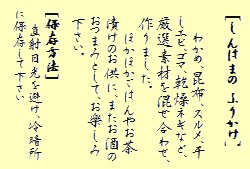 【しんはまの ふりかけ】
わかめ、昆布、スルメ、干
しエビ、ゴマ、乾燥ネギなど、
厳選素材を混ぜ合わせ、
作りました。
ほかほかごはんやお茶
漬けのお供に、またお酒の
おつまみとして、お楽しみ
下さい。
【保存方法】
直射日光を避け、冷暗所
に保存して下さい